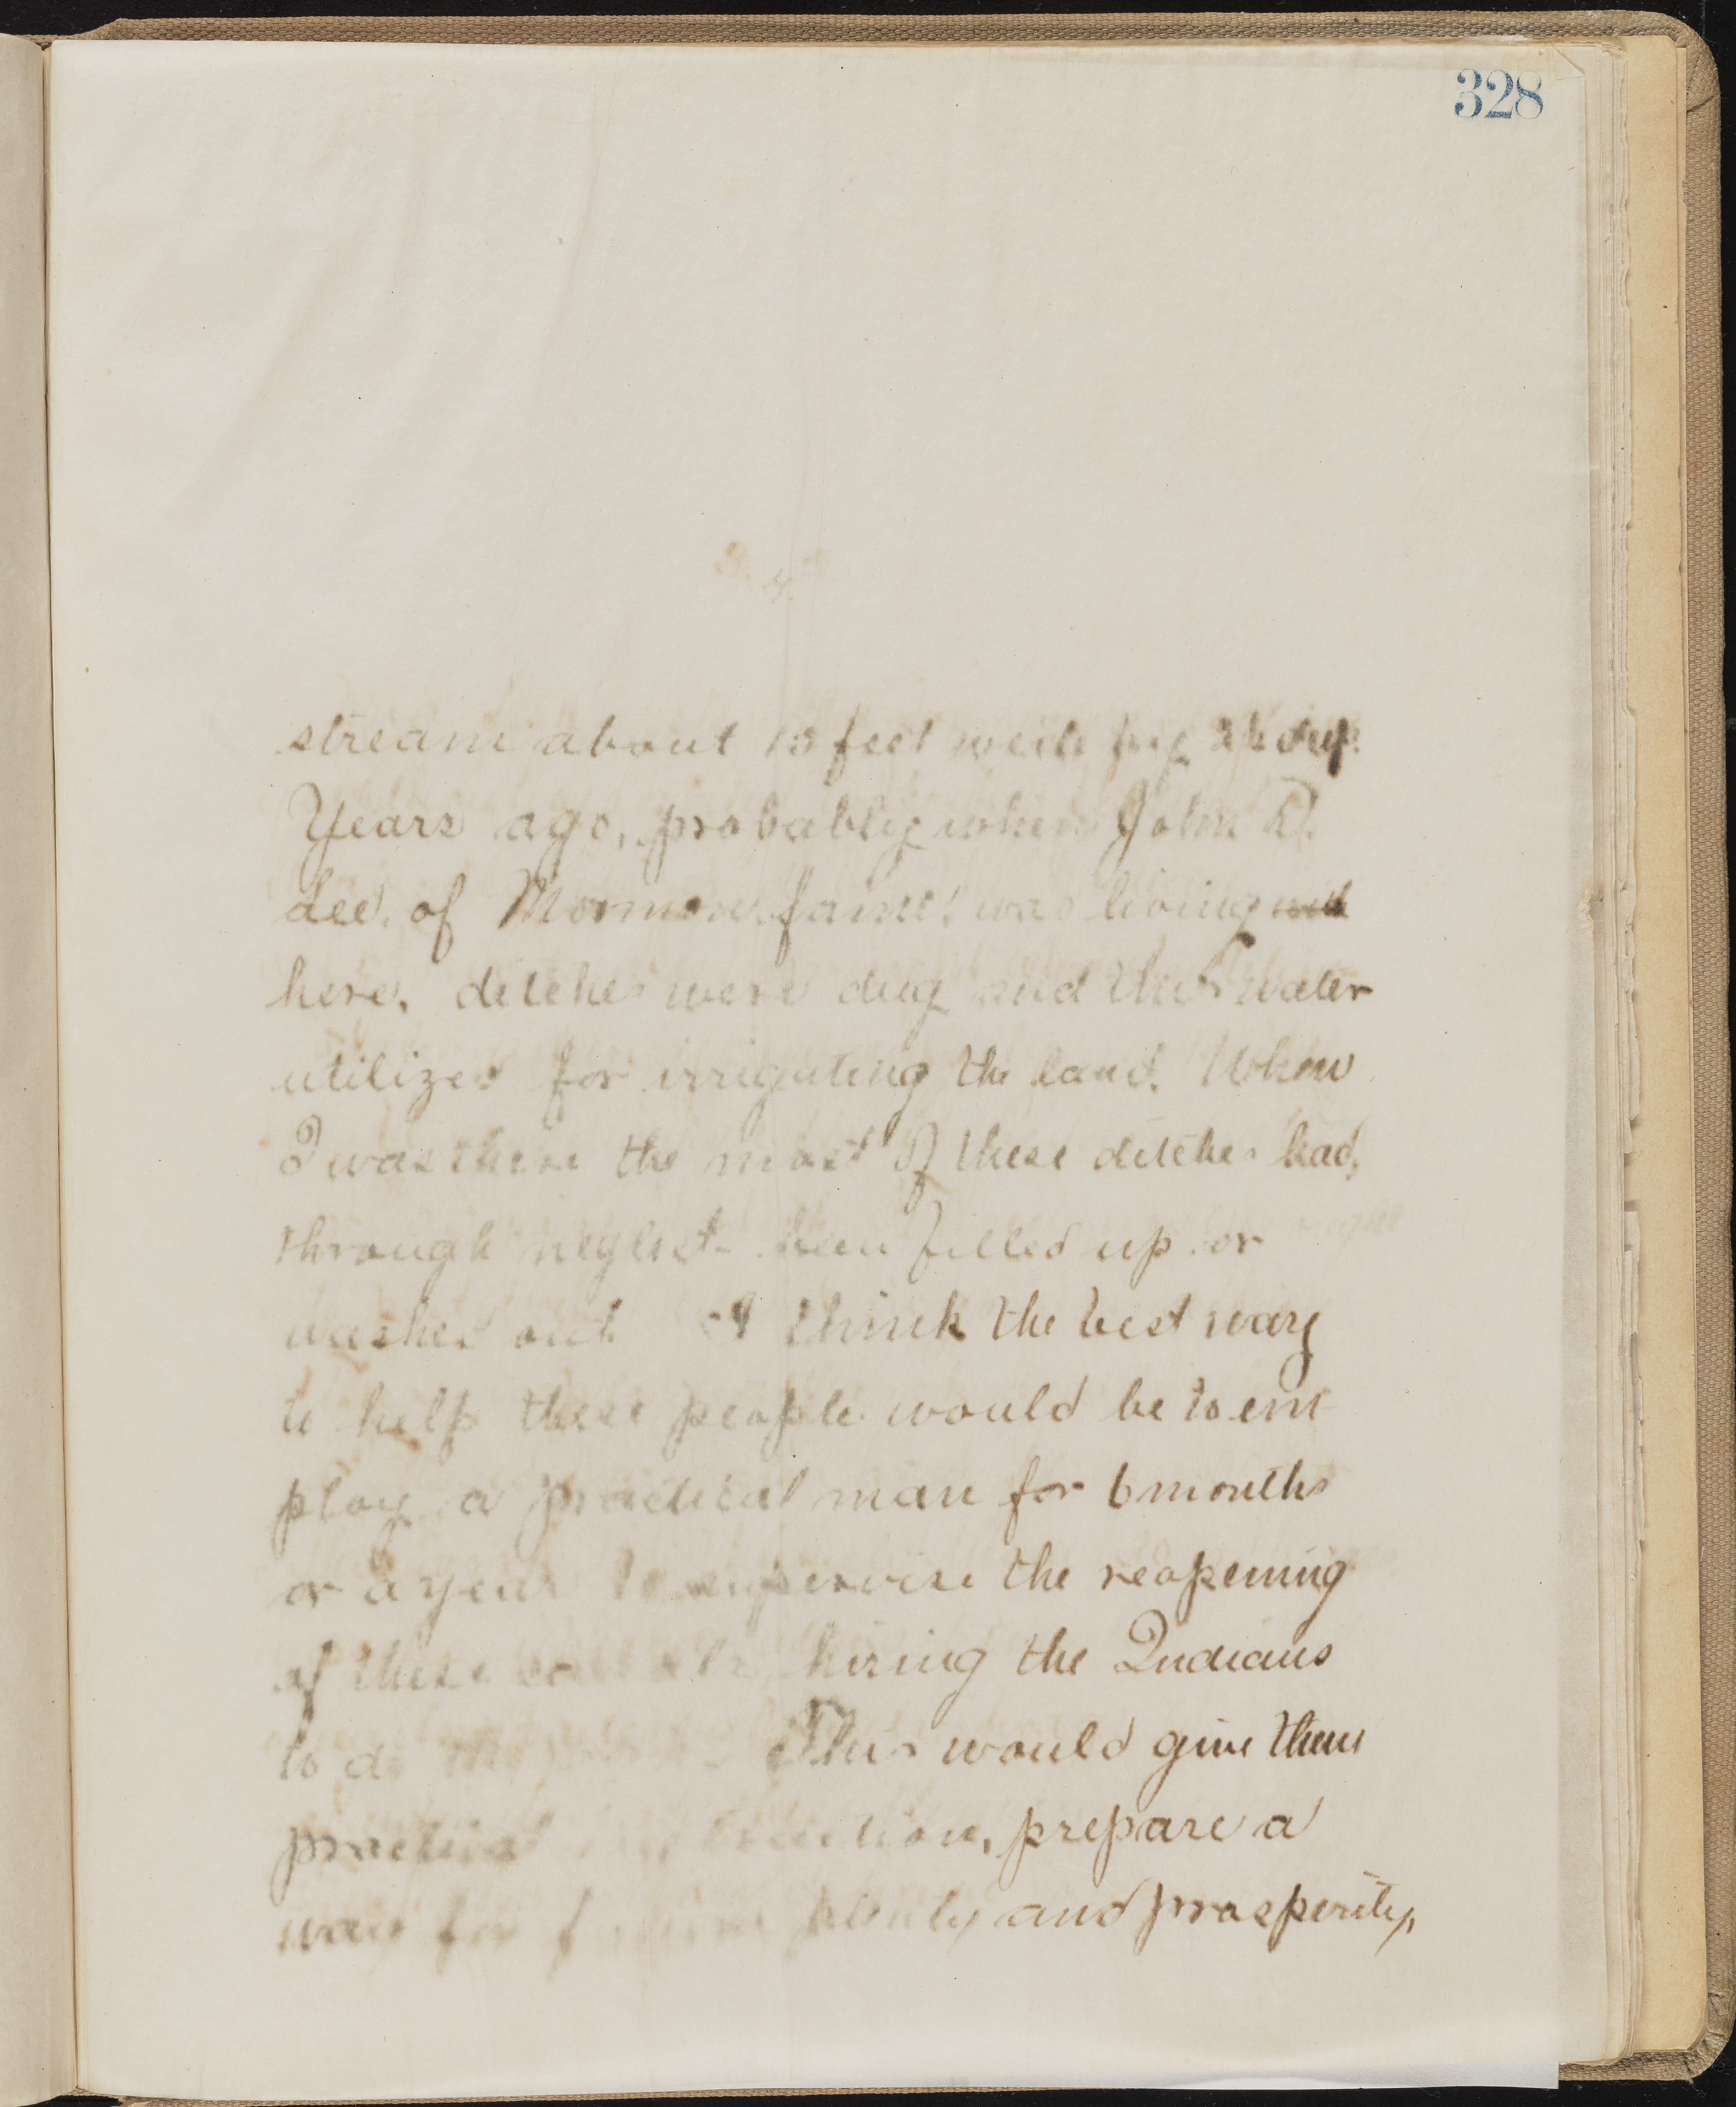 328
stream about 10 feet wide by 2 ft deep.
Years ago, probably when John D.
Lee, of Mormon fame, was living
here, ditches were dug and the water
utilized for irrigating the land. When
I was there the most of these ditches had,
through neglect been filled up or
washed out. I think the best way
to help these people would be to em
ploy a practical man for 6 months
or a year to supervise the reopening
of these hiring the Indians
to do the This would give them
practical instruction, prepare a
way for future plenty and prosperity,